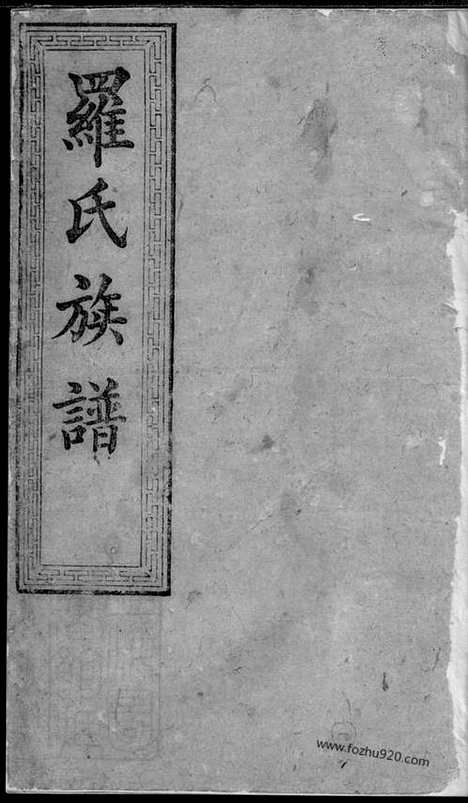 羅氏族譜
www.fozhu920.com